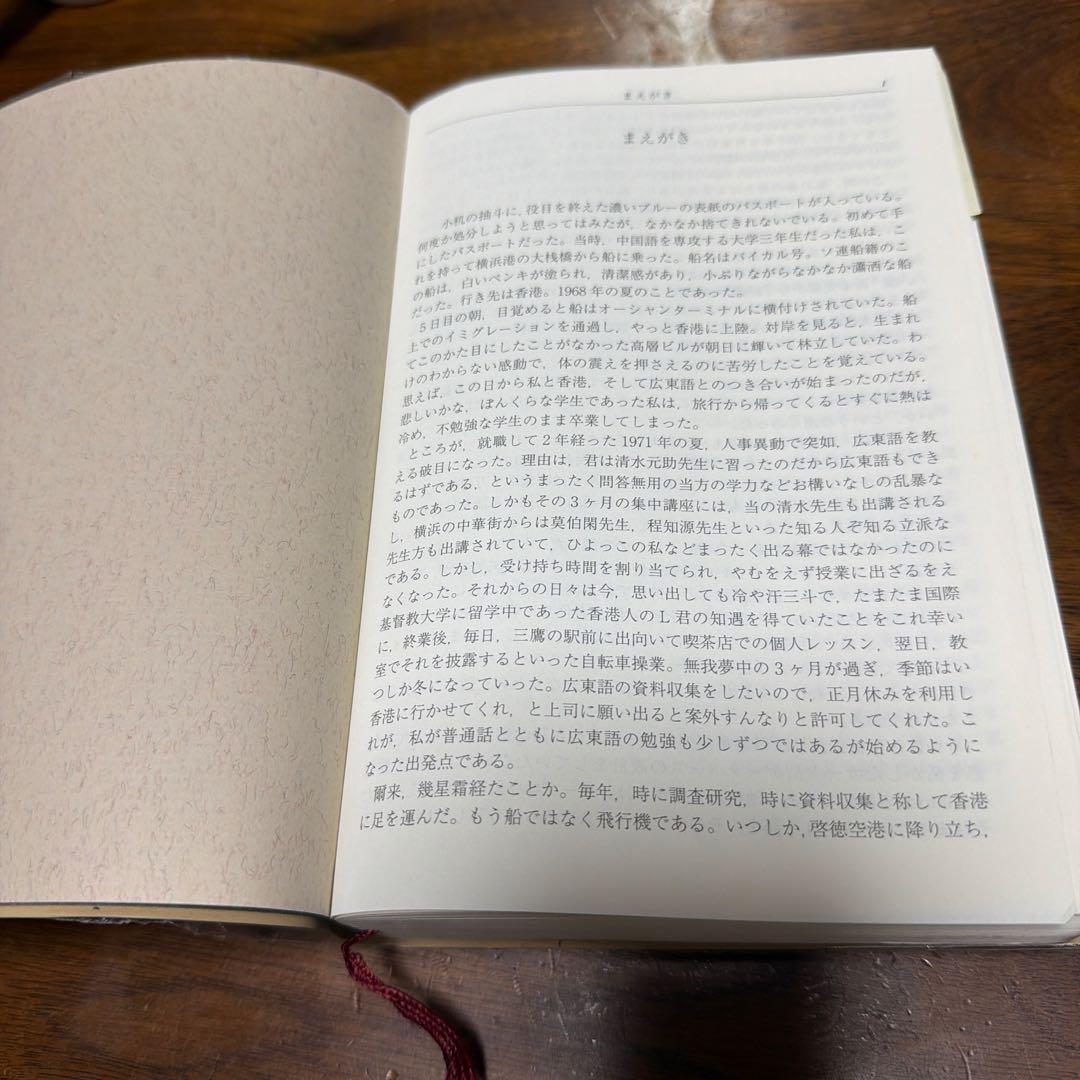 まえがき
1
まえがき
小机の抽斗に，役目を終えた濃いブルーの表紙のパスポートが入っている。
何度か処分しようと思ってはみたが，なかなか捨てきれないでいる。初めて手
にしたパスポートだった。当時，中国語を専攻する大学三年生だった私は，こ
れを持って横浜港の大桟橋から船に乗った。船名はバイカル号。ソ連船籍のこ
の船は，白いペンキが塗られ，清潔感があり，小ぶりながらなかなか瀟洒な船
だった。行き先は香港。1968年の夏のことであった。
5日目の朝，目覚めると船はオーシャンターミナルに横付けされていた。船
上でのイミグレーションを通過し，やっと香港に上陸。対岸を見ると，生まれ
てこのかた目にしたことがなかった高層ビルが朝日に輝いて林立していた。わ
けのわからない感動で，体の震えを押さえるのに苦労したことを覚えている。
思えば，この日から私と香港，そして広東語とのつき合いが始まったのだが，
悲しいかな，ぼんくらな学生であった私は，旅行から帰ってくるとすぐに熱は
冷め，不勉強な学生のまま卒業してしまった。
ところが，就職して2年経った1971年の夏，人事異動で突如，広東語を教
える破目になった。理由は，君は清水元助先生に習ったのだから広東語もでき
るはずである，というまったく問答無用の当方の学力などお構いなしの乱暴な
ものであった。しかもその3ヶ月の集中講座には，当の清水先生も出講される
し，横浜の中華街からは莫伯閑先生，程知源先生といった知る人ぞ知る立派な
先生方も出講されていて，ひよっこの私などまったく出る幕ではなかったのに
である。しかし，受け持ち時間を割り当てられ，やむをえず授業に出ざるをえ
なくなった。それからの日々は今，思い出しても冷や汗三斗で，たまたま国際
基督教大学に留学中であった香港人のL君の知遇を得ていたことをこれ幸い
に，終業後，毎日，三鷹の駅前に出向いて喫茶店での個人レッスン，翌日，教
室でそれを披露するといった自転車操業。無我夢中の3ヶ月が過ぎ，季節はい
つしか冬になっていった。広東語の資料収集をしたいので，正月休みを利用し
香港に行かせてくれ，と上司に願い出ると案外すんなりと許可してくれた。こ
れが，私が普通話とともに広東語の勉強も少しずつではあるが始めるように
なった出発点である。
爾来，幾星霜経たことか。毎年，時に調査研究，時に資料収集と称して香港
に足を運んだ。もう船ではなく飛行機である。いつしか，啓徳空港に降り立ち，